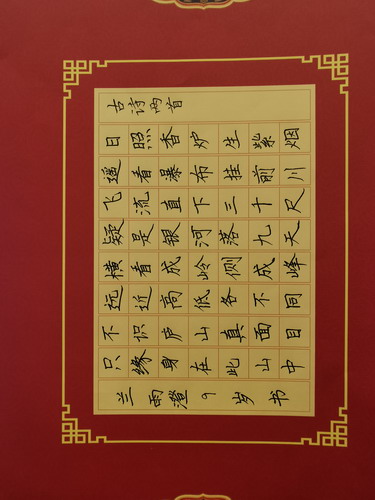 古诗两首
日照香炉生紫烟
遥看瀑布挂前川
飞流直下三十尺
疑是银河落九天
横看成岭侧成峰
远近高低各不同
不识庐山真面目
只缘身在此山中
兰雨澄9岁书